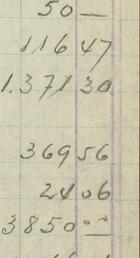 50 —
116 47
1.371 30
369 56
24 06
3850 --